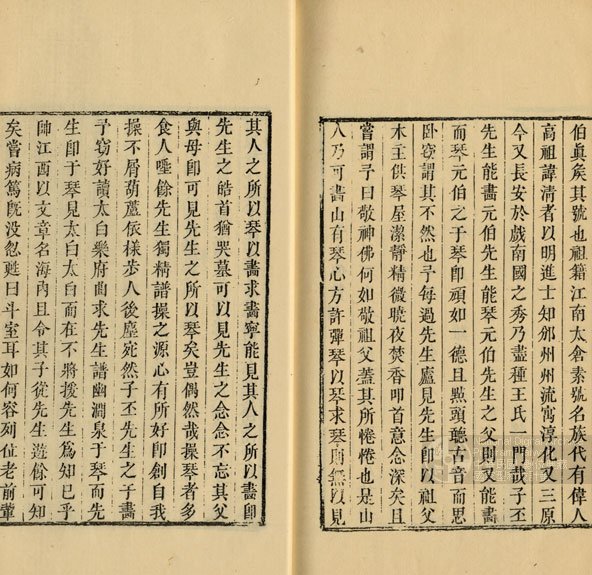 伯眞矣其號也祖籍江南太倉素號名族代有偉人
高祖諱清者以明進士知邠州州流寓淳化又三原
今又長安於戲南國之秀乃盡種王氏一門哉子丕
先生能畫元伯先生能琴元伯先生之父則又能畫
而琴元伯之于琴卽頑如一德且㸃頭聽古音而思
卧竊謂其不然也予每過先生廬見先生卽以祖父
木主供琴屋潔靜精微曉夜焚香叩首意念深矣且
嘗謂予曰敬神佛何如敬祖父葢其所惓惓也是山
人乃可畫山有琴心方許彈琴以琴求琴則無以見
其人之所以琴以畫求畫寧能見其人之所以畫卽
先生之皓首猶哭墓可以見先生之念念不忘其父
與母卽可見先生之所以琴矣豈偶然哉操琴者多
食人唾餘先生獨精譜操之源心有所好卽創自我
操不屑葫蘆依樣步人後塵宛然子丕先生之于畫
予竊好讀太白樂府曲求先生譜幽澗泉于琴而先
生卽于琴見太白太白而在不將援先生爲知已乎
帥江酉以文章名海內且令其子從先生遊餘可知
矣嘗病篤旣没忽甦曰斗室耳如何容列位老前輩